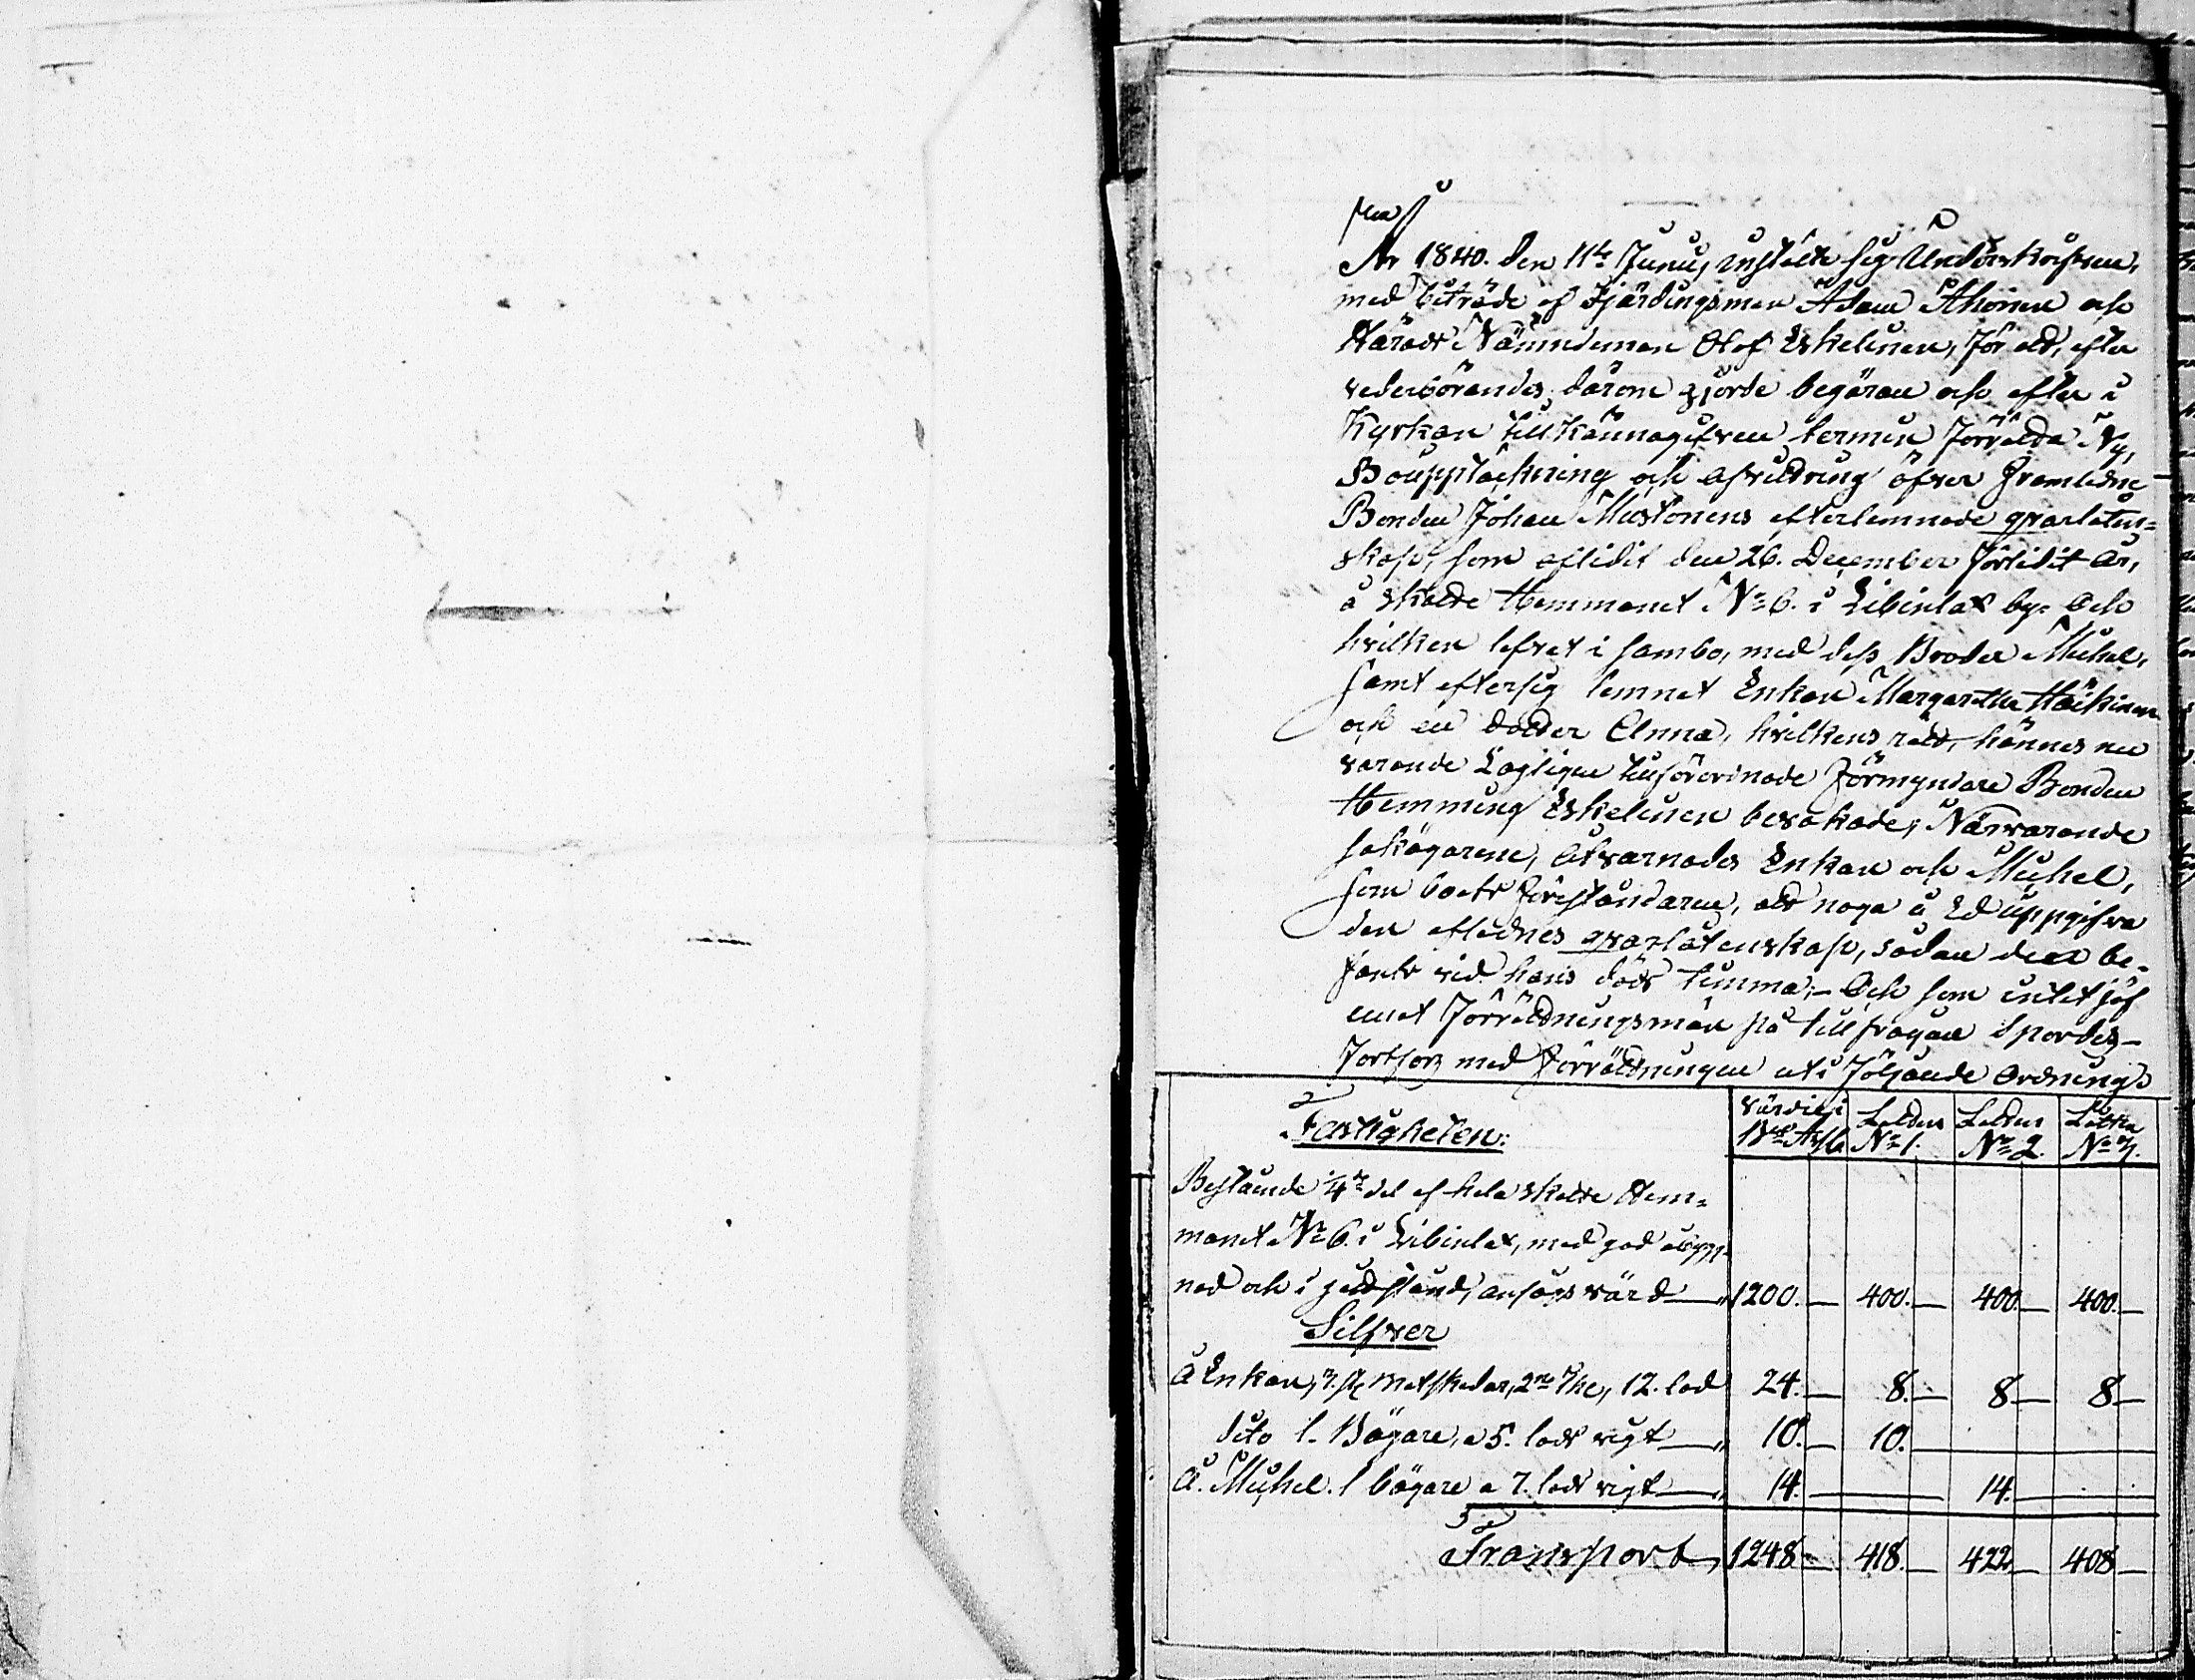 År 1840. den 11te Junij, instälte sig Undörskrifven,
med biträde af Fjärdingsman Adam Ahoinen och
Härads Nämndeman Olof Eskelinen, för att, efter
vederbörandes därom gjorde begäran och efter i
Kyrkan tillkännagifven termin förrätta Ny,
Bouppteckning och afvittring öfver Framledne
Bonden Johan Mustonens efterlemnade qvarlåten=
skap, som aflidit den 26. December förlidit År,
å Skatte Hemmanet No 6. i Libinlax by. Och
hvilken lefvat i sambo, med dess Broder Michel,
samt eftersig lemnat Enkan Margaretha Häikinen
och en dotter Anna, hvilkens rätt, hännes nu
varande Lagligen tillförordnade Förmyndare Bonden
Hemming Eskelinen bevakade, Närvarande
sakägarene, Åtvarnades Enkan och Michel,
som boets föreståndaren, att noga å Ed uppgifva
den aflednes qvarlåtenskap, sådan den be-
fants vid hans döds timma; Och som intet jäf
emot Förrättningsmän på tillfrågan spordes-
Fortfors med Förrättningen uti Följande Ordning:
Fastigheten:
Värdie i Bco Ass Lotten No 1. Lotten No 2. Lotten No 3.
Bestående 1/4 del af hela skatte Hem=
manet No 6. i Libinlax, med god åbygg-
nad och i godt stånd, ansågs värd 1200. — 400. — 400. — 400. —
Silfver
Å Enkan, 3. st. Matskedar, 12. lod 24. — 8. — 8 — 8 —
dito 1. Bägare, a 5. lods vigt 10. — 10. —
Å. Michel. 1 bägare a 7. lods vigt 14. — 14. —
Transport 1248 — 418. — 422 — 408 —